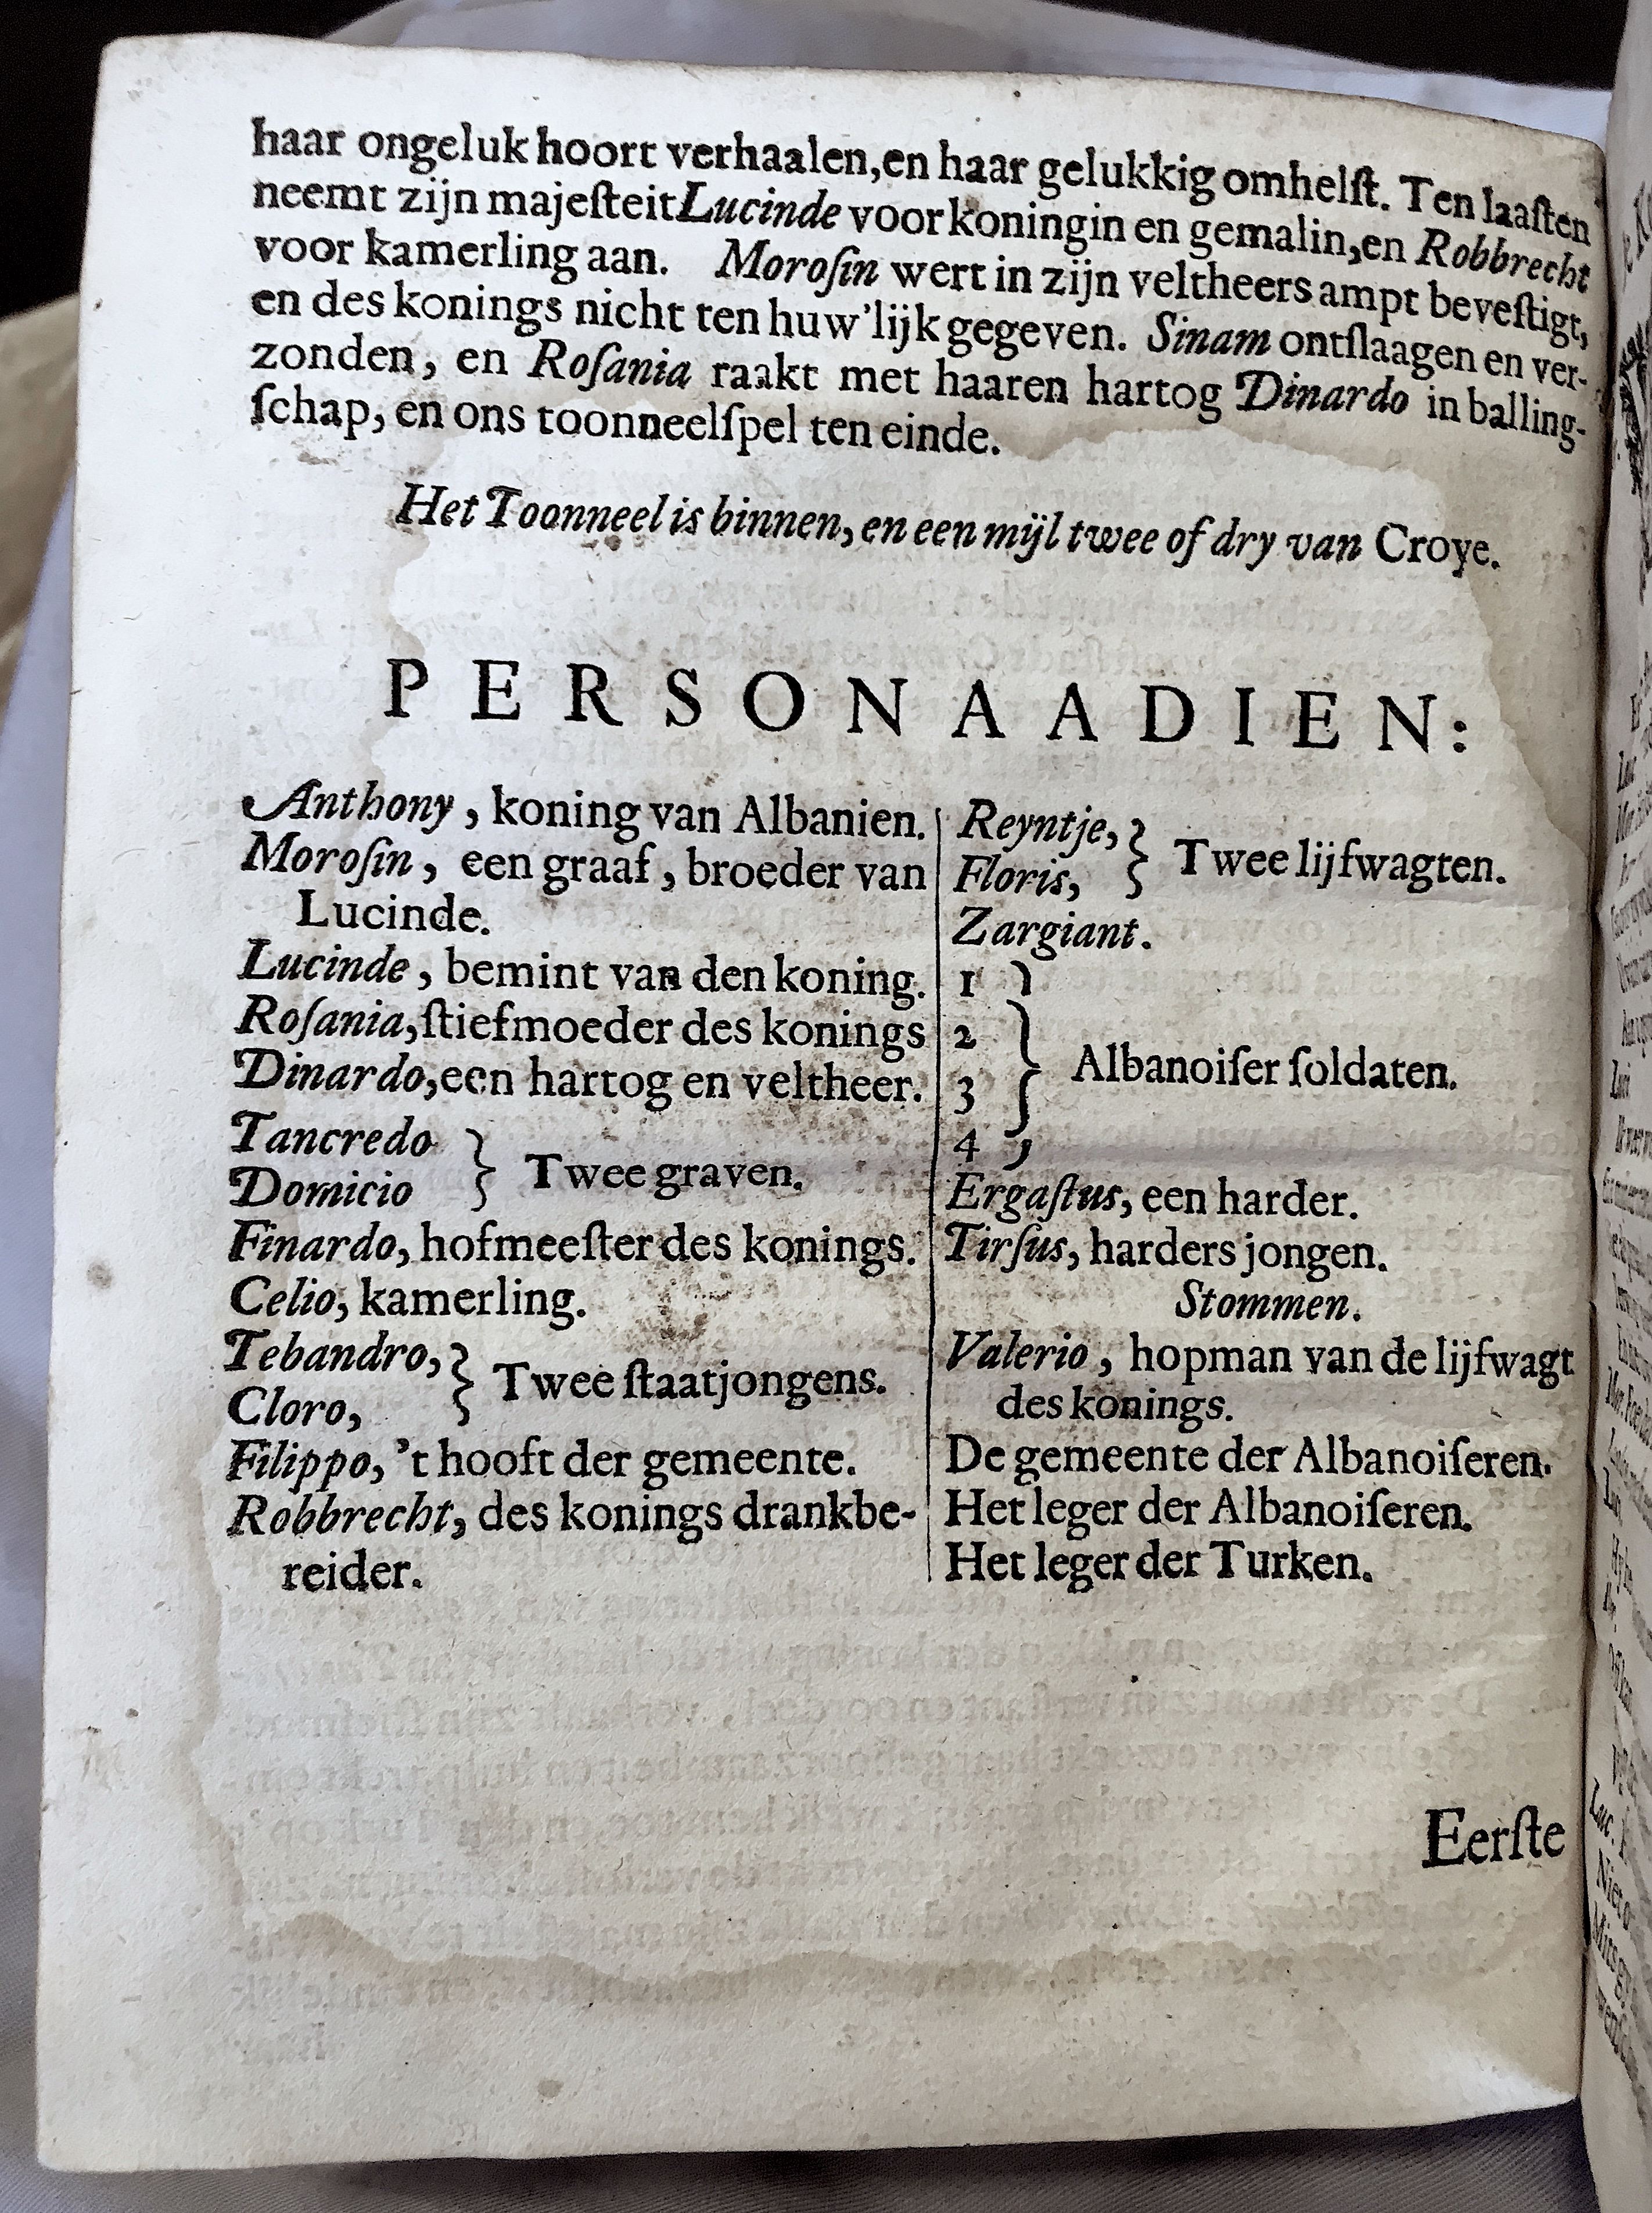 haar ongeluk hoort verhaalen, en haar gelukkig omhelſt. Ten laaſten
neemt zijn majeſteit Lucinde voor koningin en gemalin, en Robbrecht
voor kamerling aan. Moroſin wert in zijn veltheers ampt beveſtigt,
en des konings nicht ten huw'lijk gegeven. Sinam ontſlaagen en ver-
zonden, en Roſania raakt met haaren hartog Dinardo in balling-
ſchap, en ons toonneelſpel ten einde.
Het Toonneel is binnen, en een mijl twee of dry van Croye.
PERSONAADIEN:
Anthony, koning van Albanien.
Moroſin, een graaf, broeder van
Lucinde.
Lucinde, bemint van den koning.
Roſania, ſtiefmoeder des konings
Dinardo, een hartog en veltheer.
Tancredo
Domicio } Twee graven.
Finardo, hofmeeſter des konings.
Celio, kamerling.
Tebandro,
Cloro, } Twee ſtaatjongens.
Filippo, 't hooft der gemeente.
Robbrecht, des konings drankbe-
reider.
Reyntje,
Floris, } Twee lijfwagten.
Zargiant.
1
2
3 } Albanoiſer ſoldaten.
4
Ergaſtus, een harder.
Tirſus, harders jongen.
Stommen.
Valerio, hopman van de lijfwagt
des konings.
De gemeente der Albanoiſeren.
Het leger der Albanoiſeren.
Het leger der Turken.
Eerſte